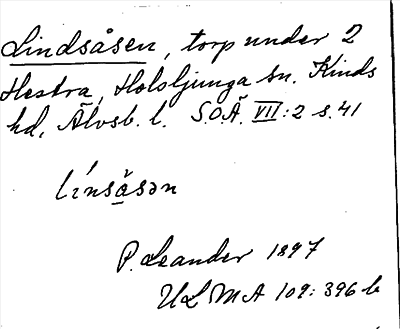 Lindsåsen, torp under 2
Hestra, Holsljunga sn. Kinds
hd, Älvsb. l. S.O.Ä. VII:2 s. 41
línså̀sən
P. Leander 1897
ULMA 109: 396 b